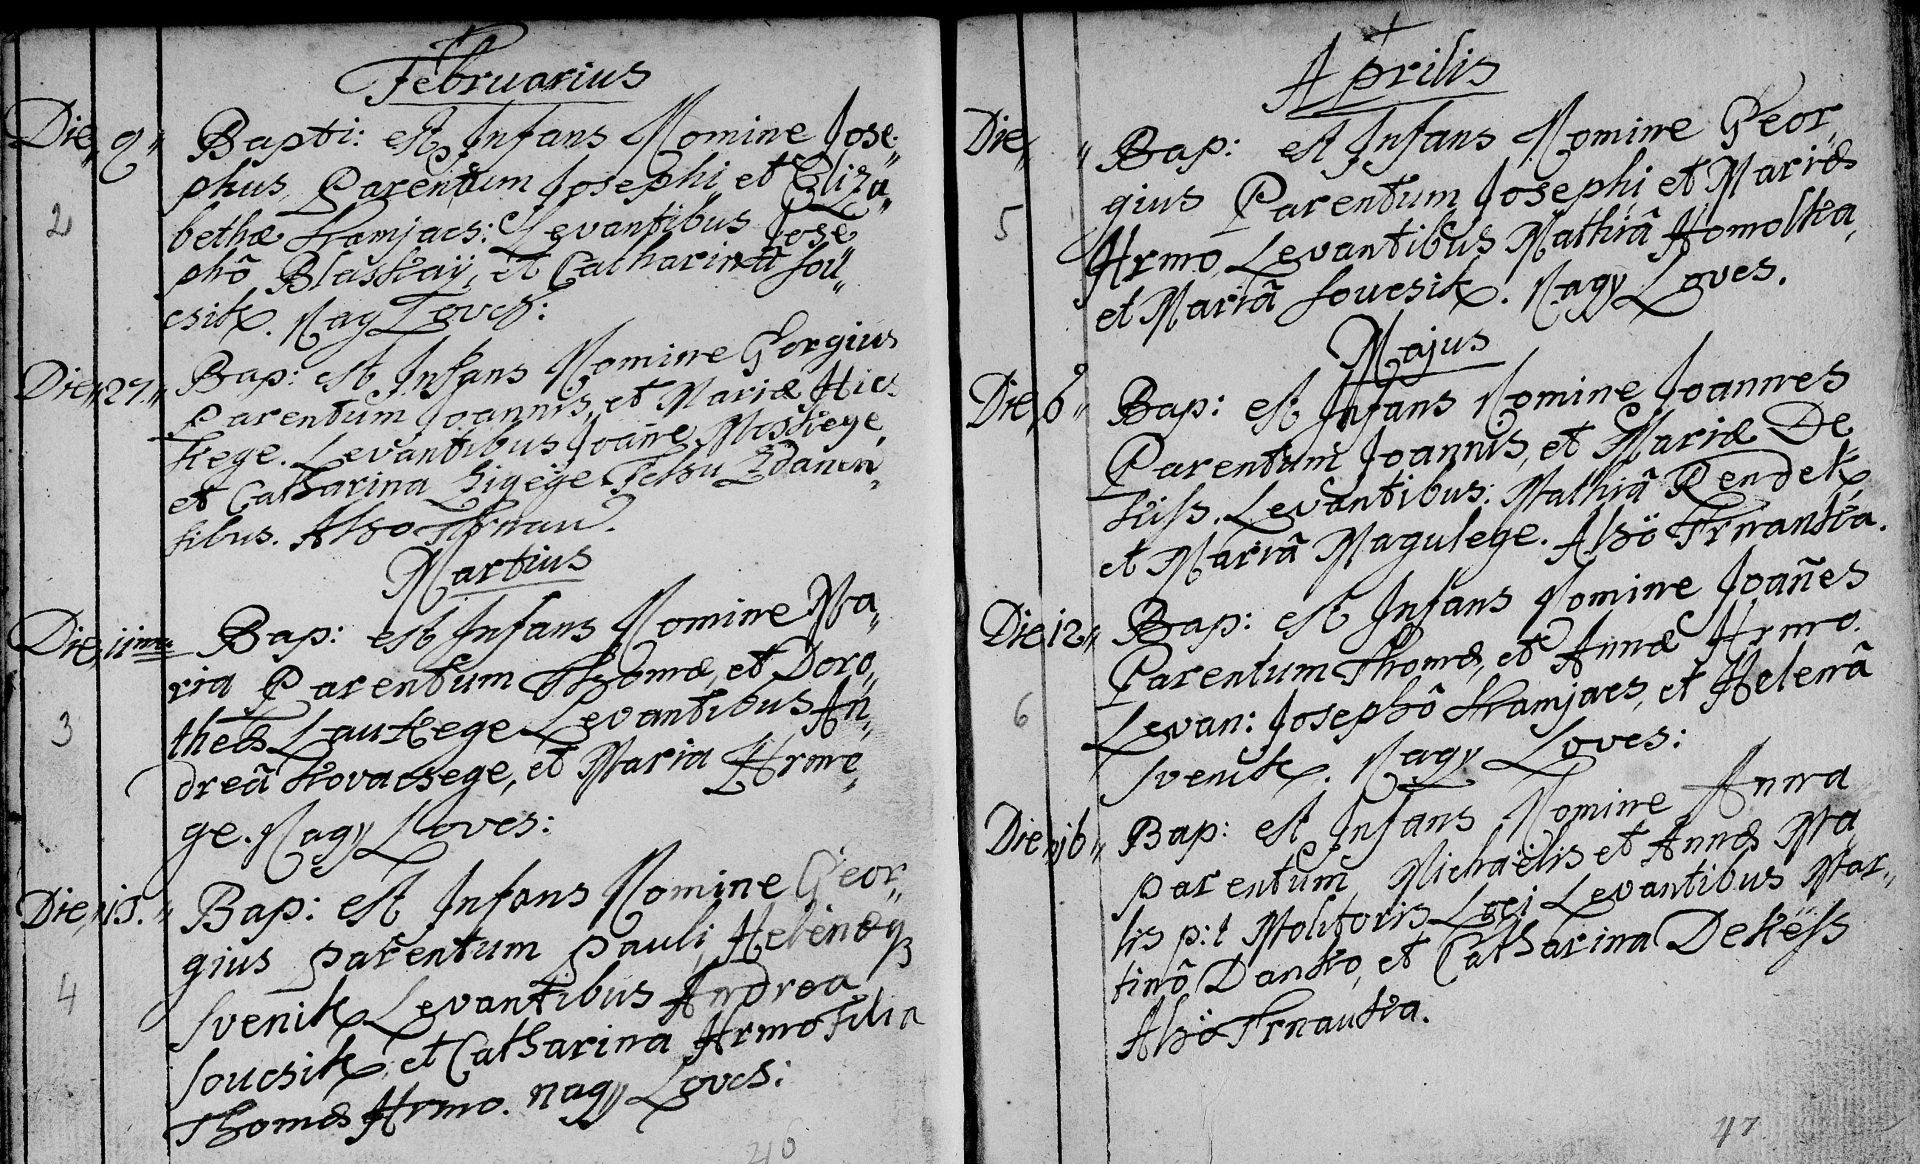 Februarius
Die, 9,, Bapti: est Infans Nomine Jose,,
2 phus, Parentum Josephi, et Eliza,,
bethæ Kramjacs: Levantibus Jose
phô Blaskaÿ, et Catharinâ Sou,,
csik. Nagy Loves:
Die,, 27,, Bap: est Infans Nomine Gorgius
Parentum Joannis, et Mariæ Hics
kege. Levantibus Joañe Maskege,
et Catharina Sigege Felsu Zdanen,,
sibus. Alsó Trnau.
Martius
Die, 11ma Bap: est Infans Nomine Ma,,
ria Parentum Thomæ, et Doro,,
3 theæ Laukege Levantibus An,,
dreâ Kovacsege, et Maria Hrme,,
ge. Nagy Loves:
Die,, 15.,, Bap: est Infans Nomine Geor,,
gius parentum Pauli, Helenæq
4 Svenik, Levantibus Andrea
Soucsik, et Catharina Hrmo Filia
Thomæ Hrmo. Nagy Loves:
46
Aprilis
Die,, ,, Bap: est Infans Nomine Geor,,
gius Parentum Josephi et Mariæ
5 Hrmo, Levantibus Mathiâ Homolka,
et Mariâ Soucsik. Nagy Loves.
Majus
Die, 6,, Bap: est Infans Nomine Joannes
Parentum Joannis, et Mariæ De
kiss. Levantibus: Mathiâ Rendek,
et Mariâ Magulege. Alsö Trnanka.
Die 12,, Bap: est Infans Nomine Joañes
Parentum Thomæ, et Annæ Hrmo.
6 Levan: Josephô Kramjacs, et Helenâ
Svenik. Nagy Loves:
Die,, 16,, Bap: est Infans Nomine Anna
parentum, Michaëlis et Annæ Ma
lis p:t Molitoris Loci Levantibus Mar,,
tinô Danko, et Catharina Dekëss
Alsö Trnauka.
47